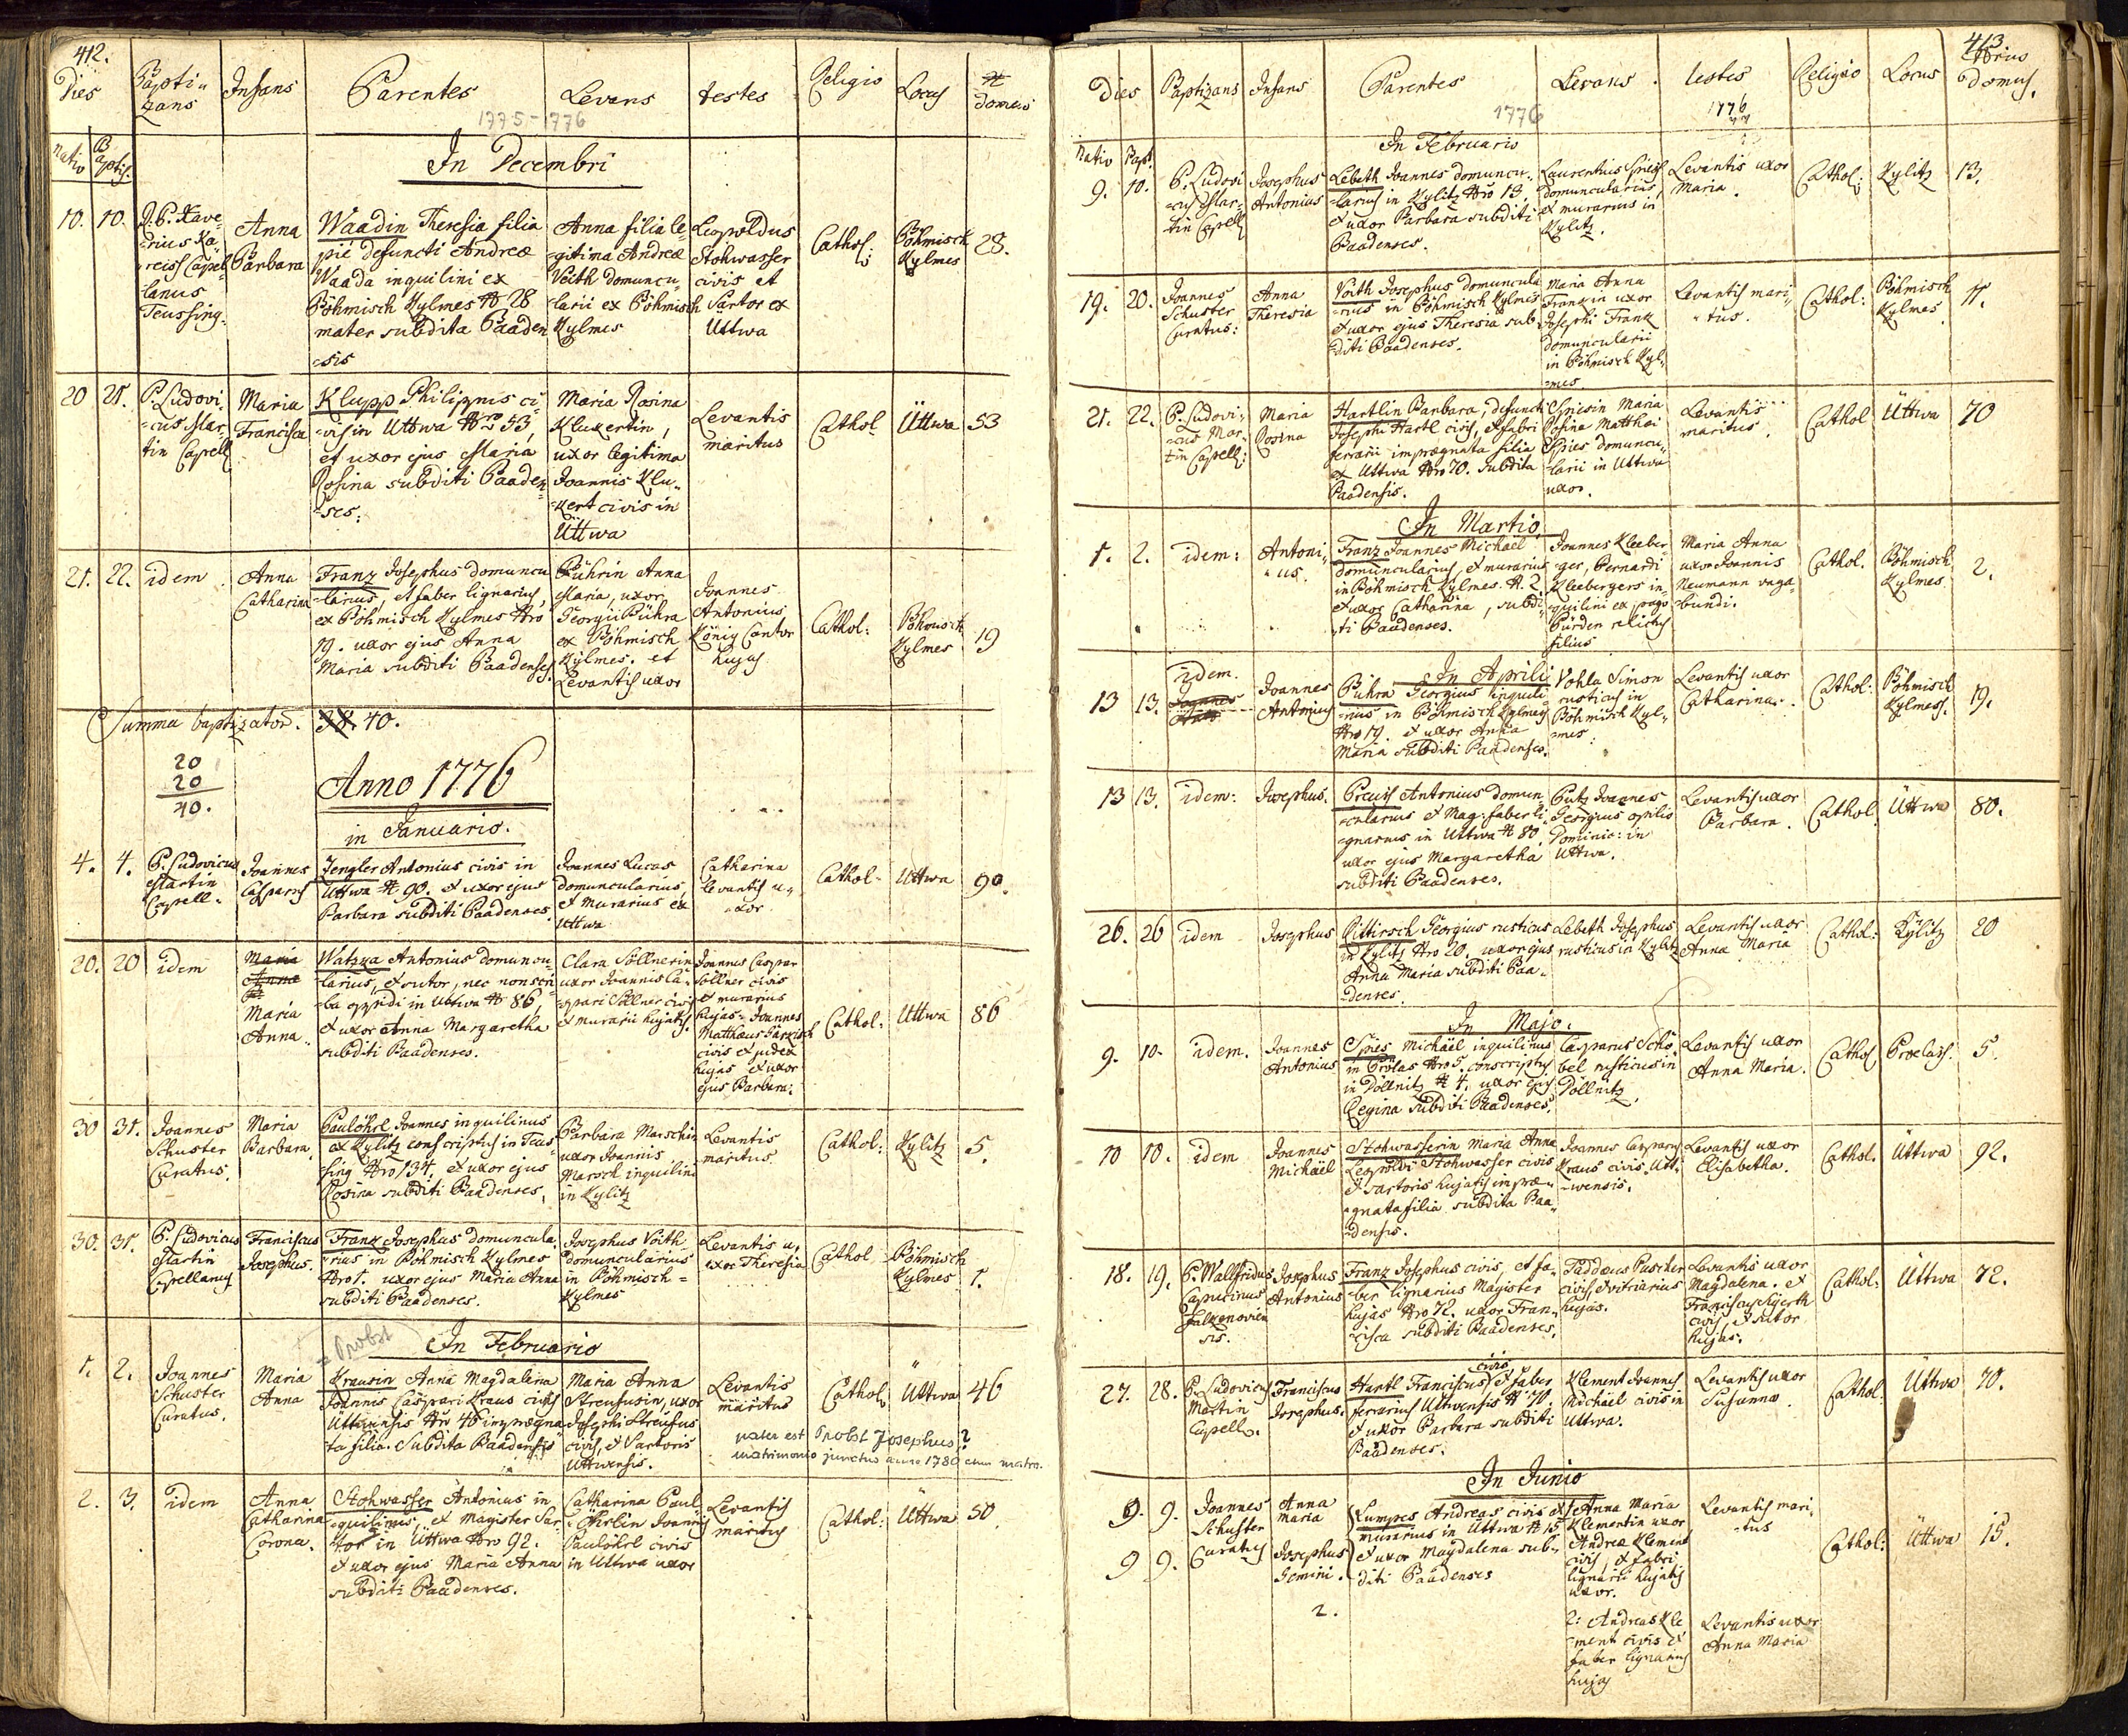 412.
Dies
Bapti-
zans
Infans
Parentes
Levans
testes
Religio
Locus
№
domus
1775-1776
nativ
Baptis.
In Decembri
10.
10.
Anna
Barbara
Waadin Theresia filia
pie defuncti Andreæ
Waada inquilini ex
Böhmisch Kylmes № 28
mater subdita Baaden
-sis
Anna filia le-
-gitima Andreæ
Voith domuncu-
-larii ex Böhmisch
Kylmes
Leopoldus
Stohwasser
civis et
Sartor ex
Uttwa
Cathol:
Böhmisch
Kylmes
28.
20
21.
P. Ludovi-
-cus Mar-
tin Capell
Maria
Francisca
Klupp Philippus ci-
-vis in Uttwa Nro 53,
et uxor ejus Maria
Rosina subditi Baaden
-ses.
Maria Rosina
Klukertin,
uxor legitima
Joannis Klu-
-kert civis in
Üttwa
Levantis
maritus
Cathol
Üttwa
53
21.
22.
idem
Anna
Catharina
Franz Josephus domuncu
-larius, et faber lignarius,
ex Böhmisch Kylmes Nro
19. uxor ejus Anna
Maria subditi Baadenses
Bührin Anna
Maria, uxor
Georgii Bühra
ex Böhmisch
Kylmes. et
Levantis uxor
Joannes
Antonius
König Cantor
hujas
Cathol:
Böhmisch
Kylmes
19
Summa baptizator. 38. 40.
20
20
40.
Anno 1776
in Januario.
4.
4.
P. Ludovicus
Martin
Capell.
Joannes
Casparus
Zengler Antonius civis in
Uttwa № 90. et uxor ejus
Barbara subditi Baadenses.
Joannes Lucas
domuncularius,
et murarius ex
Uttwa
Catharina
levantis u-
-xor
Cathol.
Uttwa
90.
20.
20
idem
Maria
Anna
Maria
Anna
Watzka Antonius domuncu-
-larius, et sutor, nec non scri-
-ba oppidi in Uttwa № 86,
et uxor Anna Margaretha
subditi Baadenses.
Clara Söllnerin
uxor Joannis Ca-
-spari Söllner civis
et murarii hujatis.
Joannes Caspar
Söllner civis
et murarius
hujas. Joannes
Matthæus
civis et judex
hujas et uxor
ejus Barbara:
Cathol:
Uttwa
86
30
31.
Joannes
Schuster
Curatus.
Maria
Barbara
Paulöhrl Joannes inquilinus
ex Kylitz conscriptus in Teus-
-sing Nro 134. et uxor ejus
Rosina subditi Baadenses.
Barbara Marschin
uxor Joannis
Marsch inquilini
in Kylitz
Levantis
maritus
Cathol:
Kylitz
5.
30.
31.
P. Ludovicus
Martin
Capellanus
Franciscus
Josephus.
Franz Josephus domuncula
-rius in Böhmisch Kylmes
Nro 1. uxor ejus Maria Anna
subditi Baadenses.
Josephus Voith
domuncularius
in Böhmisch-
Kylmes
Levantis u-
xor Theresia
Cathol
Böhmisch
Kylmes
1.
= Probst
In Februario
1.
2.
Joannes
Schuster
Curatus.
Maria
Anna
Krausin Anna Magdalena
Joannis Caspari Kraus civis
Üttwensis Nro 46 imprægna
ta filia. Subdita Baadensis
Maria Anna
Streufusin, uxor
Josephi Streufus
civis, et Sartoris
Uttwensis.
Levantis
maritus
Cathol:
Uttwa
46
pater est Probst Josephus,?
matrimonio junctus anno 1780 cum matre.
2.
3.
idem
Anna
Catharina
Corona.
Stohwasser Antonius in
-quilinus, et magister Sar-
tor in Uttwa Nro 92.
et uxor ejus Maria Anna
subditi Baadenses.
Catharina Paul
Öhrlin Joannis
Paulöhrl civis
in Uttwa uxor
Levantis
maritus
Cathol:
Uttwa
50.
413
Nrus
domus.
Dies
Baptizans
Infans
Parentes
Levans.
testes
Religio
Locus
1776
1776
nativ
Bapt.
In Februario
9.
10.
P. Ludovi
-cus Mar-
tin Capell
Josephus
Antonius
Lebeth Joannes domuncu-
-larius in Kylitz Nro 13,
et uxor Barbara subditi
Baadenses.
Laurentius Spies
domuncularius,
et murarius in
Kylitz.
Levantis uxor
Maria.
Cathol:
Kylitz
13.
19.
20.
Joannes
Schuster
Curatus:
Anna
Theresia
Voith Josephus domuncula
-rius in Böhmisch Kylmes
et uxor ejus Theresia sub
-diti Baadenses.
Maria Anna
Franzin uxor
Josephi Franz
domuncularii
in Böhmisch Kyl-
-mes.
Levantis mari-
-tus.
Cathol:
Böhmisch
Kylmes
11.
21.
22.
P. Ludovi-
-cus Mar-
tin Capell:
Maria
Rosina
Hartlin Barbara, defuncti
Josephi Hartl civis, et fabri
ferrarii imprægnata filia
ex Uttwa Nro 70. subdita
Baadensis.
Spiesin Maria
Rosina Matthæi
Spies domuncu-
-larii in Uttwa
uxor.
Levantis
maritus.
Cathol
Üttwa
70
In Martio
1.
2.
idem:
Antoni-
-us.
Franz Joannes Michael
domuncularius, et murarius
in Böhmisch Kylmes. №. 2.
et uxor Catharina, subdi-
-ti Baadenses.
Joannes Kleeber-
-ger, Bernardi
Kleebergers in-
-quilini ex pago
Pürden relictus
filius
Maria Anna
uxor Joannis
Neumann vaga-
-bundi.
Cathol.
Böhmisch
Kylmes.
2.
In Aprili
13
13.
idem.
Joannes
Joannes
Antonius
Bühra Georgius inquili-
-nus in Böhmisch Kylmes
Nro 19. et uxor Anna
Maria subditi Baadenses.
Vohla Simon
rusticus in
Böhmisch Kyl-
-mes:
Levantis uxor
Catharina.
Cathol:
Böhmisch
Kylmes.
19.
13
13.
idem:
Josephus.
Preuis Antonius domun-
-cularius et Mag: faber li-
-gnarius in Uttwa № 80,
uxor ejus Margaretha
subditi Baadenses.
Putz Joannes
Georgius opilio
Dominic: in
Uttwa.
Levantis uxor
Barbara.
Cathol
Üttwa
80.
26.
26
idem
Josephus
Pittirsch Georgius rusticus
in Kylitz Nro 20. uxor ejus
Anna Maria subditi Baa-
-denses.
Lebeth Josephus
rusticus in Kylitz
Levantis uxor
Anna Maria
Cathol:
Kÿlitz
20
In Majo.
9.
10.
idem.
Joannes
Antonius
Spies Michäel inquilinus
in Prölas Nro 5. conscriptus
in Döllnitz № 4. uxor ejus
Regina subditi Baadenses.
Casparus Schö-
bel rusticus in
Döllnitz.
Levantis uxor
Anna Maria.
Cathol
Proelas.
5.
10
10.
idem
Joannes
Michäel
Stohwasserin Maria Anna
Leopoldi Stohwasser civis
et sartoris hujatis impræ-
-gnata filia subdita Baa-
-densis.
Joannes Casparus
Kraus civis Utt-
-wensis.
Levantis uxor
Elisabetha.
Cathol.
Uttwa
92.
18.
19.
P. Wallfridus
Capucinus
Falkenovien
sis.
Josephus
Antonius
Franz Josephus civis, et fa-
-ber lignarius Magister
hujas Nro 72. uxor Fran-
-cisca subditi Baadenses.
Taddæus Puscher
civis, et vitriarius
hujas.
Levantis uxor
Magdalena. et
Franciscus
civis, et sutor
hujas.
Cathol:
Uttwa
72.
27.
28.
P. Ludovicus
Martin
Capell.
Franciscus
Josephus.
civis
Hartl Franciscus, et faber
ferrarius Uttwensis № 70.
et uxor Barbara subditi
Baadenses.
Klement Joannes
Michael civis in
Uttwa.
Levantis uxor
Susanna
Cathol:
Üttwa
70.
In Junio
9.
9.
9
9.
Joannes
Schuster
Curatus
Anna
Maria
Josephus
Gemini.
2.
Lumpes Andreas civis et
murarius in Uttwa № 15
et uxor Magdalena sub-
diti Baadenses
1 Anna Maria
Klementin uxor
Andreæ Klement
civis, et fabri
lignarii hujatis
uxor.
2: Andreas Kle
-ment civis et
faber lignarius
hujas
Levantis mari-
-tus
Levantis uxor
Anna Maria
Cathol:
Uttwa
15.